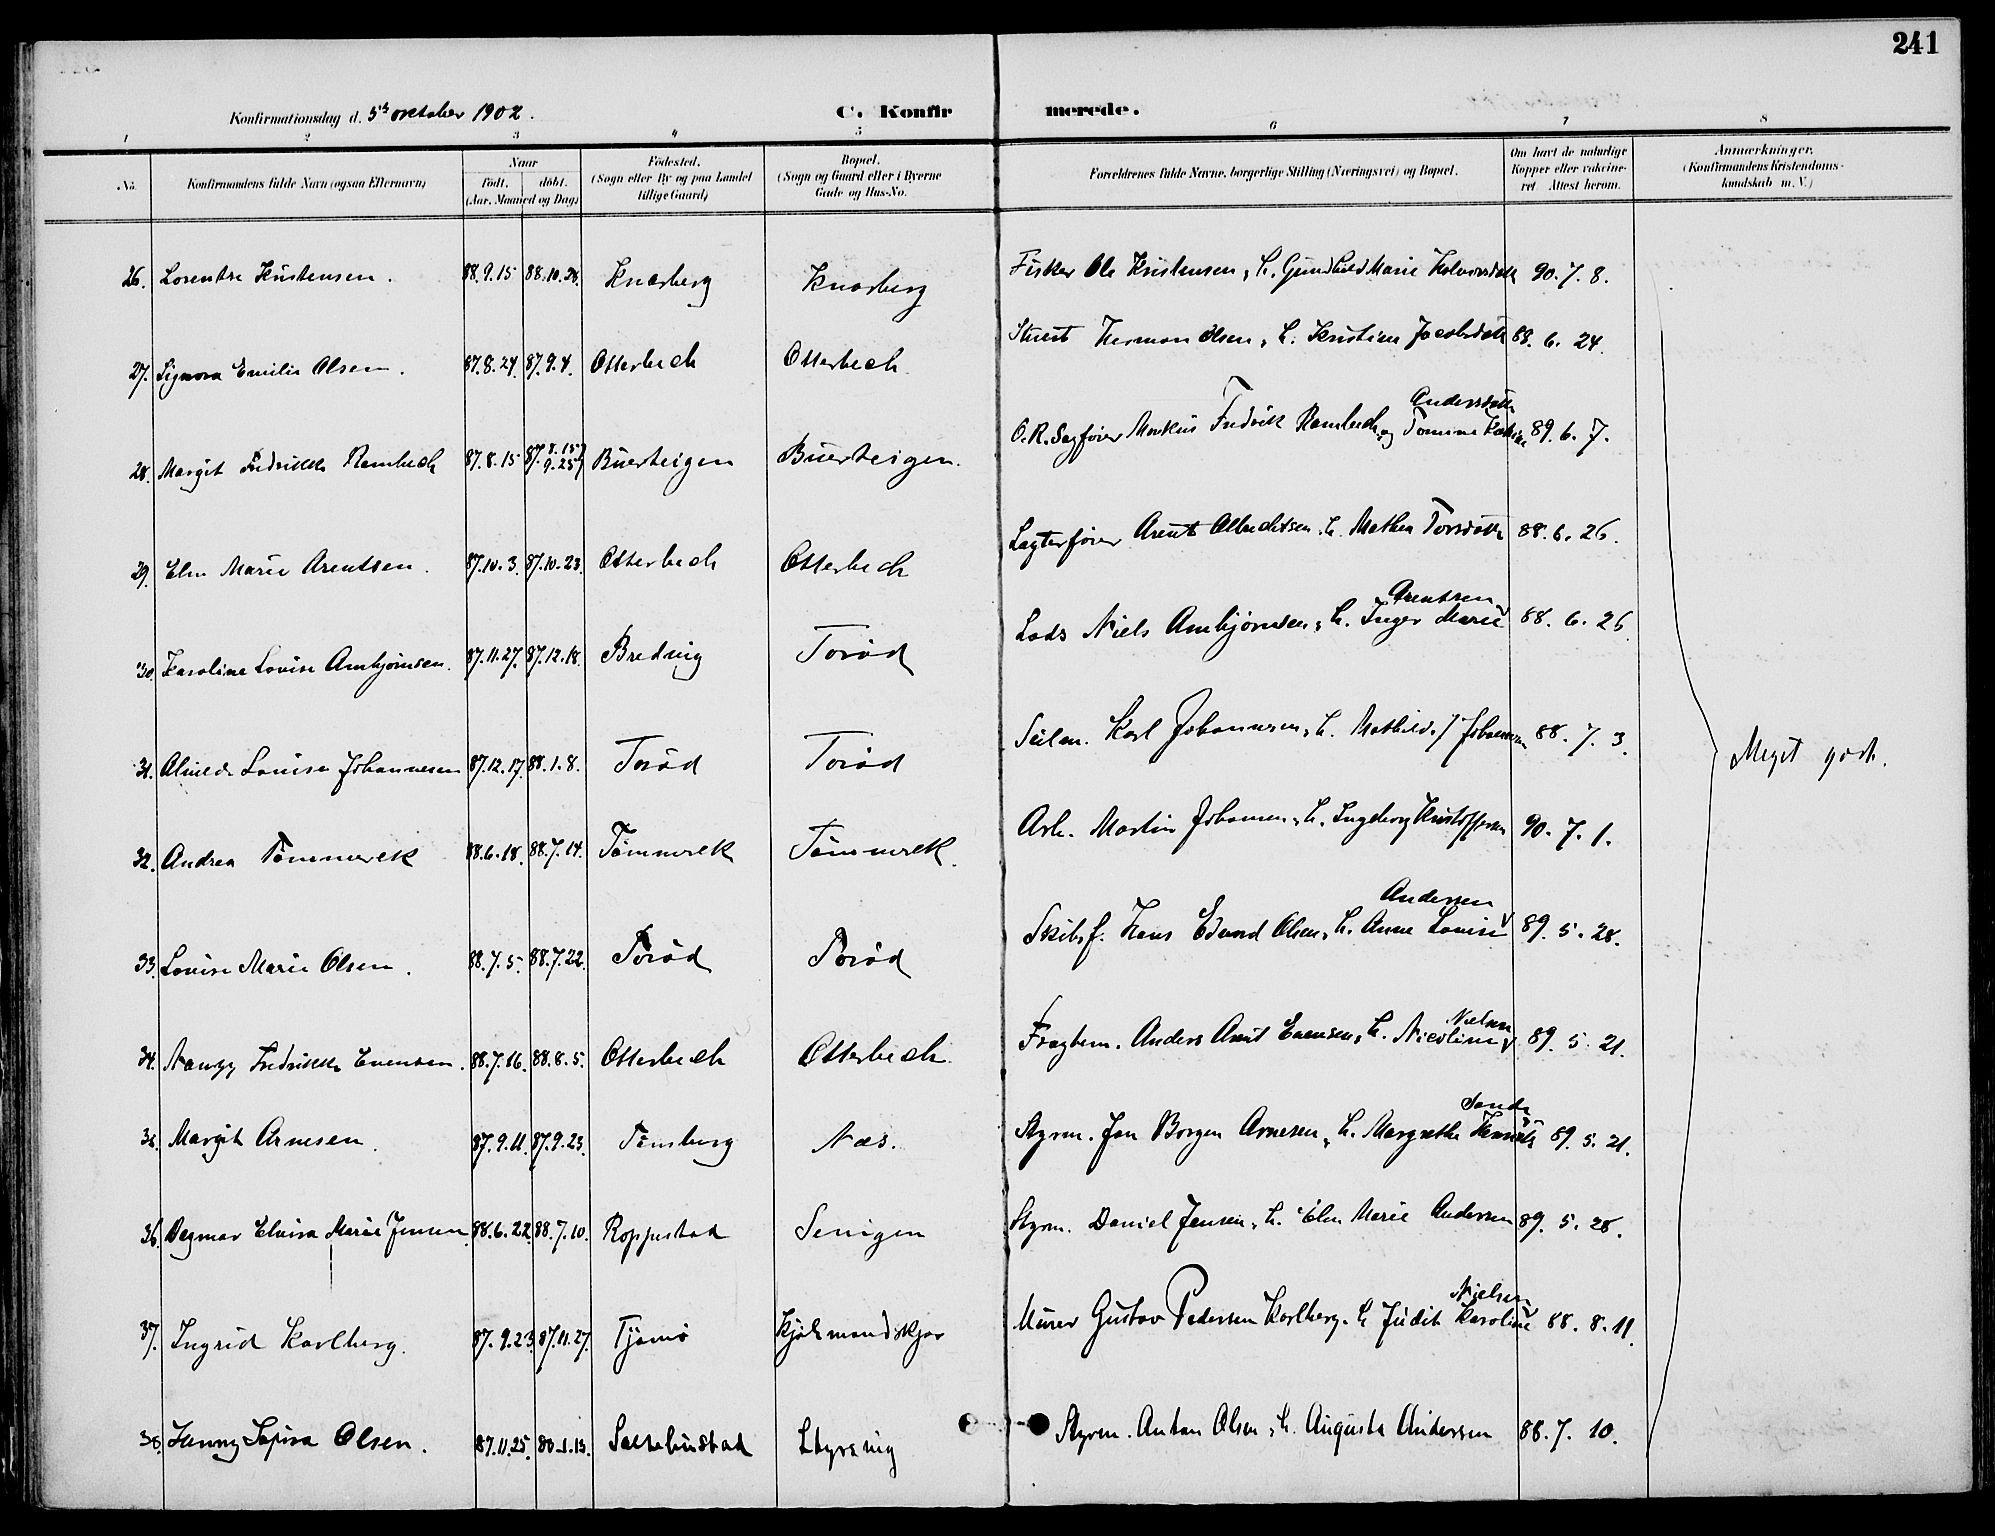 241
Konfirmationsdag d. 5te oktober 1902.
C. Konfirmerede.
1 2 3 4 5 6 7 8
No. Konfirmandens fulde Navn (ogsaa Efternavn) Naar födt. döbt. (Aar, Maaned og Dag) Födested. (Sogn eller By og paa Landet tillige Gaard) Bopæl. (Sogn og Gaard eller i Byerne Gade og Hus-No. Forældrenes fulde Navne, borgerlige Stilling (Næringsvei) og Bopæl. Om havt de naturlige Kopper eller vaksineret. Attest herom. Anmærkninger. (Konfirmandens Kristendomskundskab m. V.)
26. Lorentse Kristensen. 88.9.15 88.10.28. Knarberg Knarberg Fisker Ole Kristensen, h. Gundhild Marie Halvorsdatt 90.7.8.
27. Signora Emilie Olsen. 87.8.24. 87.9.4. Otterbech Otterbech Stuert Herman Olsen, h. Kristine Jacobsdatt 88.6.24.
Andersdatt
28. Margit Fredrikke Rambech 87.8.15 87.9.25 Buerteigen Buerteigen. O.R. Sagfører Markus Fredrik Rambech og Tomine 89.6.7.
29. Elen Marie Arentsen. 87.10.3. 87.10.23. Otterbech Otterbech Lægterfører Arent Albrechtsen, h. Mathea Torsdatt 88.6.26.
Arentsen
30. Karoline Lovise Arnbjørnsen. 87.11.27. 87.12.18. Bredvig Torød Lods Niels Arnbjørnsen, h. Inger Marie 88.6.26.
31. Alvilde Louise Johannesen 87.12.17. 88.1.8. Torød Torød Seilm. Karl Johannesen, h. Mathilde J Johannesen 88.7.3.
Meget godt.
32. Andrea Tømmerek 88.6.18. 88.7.14. Tømmerek Tømmerek. Arb. Martin Johansen, h. Ingeborg Kristoffersen 90.7.1.
Andersen
33. Louise Marie Olsen. 88.7.5. 88.7.22. Torød Torød Skibsf. Hans Edvard Olsen, h. Anne Louise 89.5.28.
Nielsen
34. Nanzy Fredrikke Evensen. 88.7.16. 88.8.5. Otterbech Otterbech. Fragtem. Anders Arnt Evensen, h. Nicoline 89.5.21.
Sande
35. Margit Arnesen. 87.9.11. 87.9.23. Tønsberg Næs. Styrm. Jan Borgen Arnesen, h. Margrethe 89.5.21.
36. Dagmar Elvira Marie Jensen 88.6.22. 88.7.10. Roppestad Senigen Styrm. Daniel Jensen, h. Elen Marie Andersen 89.5.28.
Nielsen
37. Ingrid Karlberg. 87.9.23. 87.11.27. Tjømø Kjølmandskjær Murer Gustav Pedersen Karlberg, h. Judit Karoline 88.8.11.
38. Janny Sofira Olsen. 87.11.25. 88.1.15. Saltebustad Styrsvig Styrm. Anton Olsen, h. Augusta Andersen 88.7.10.